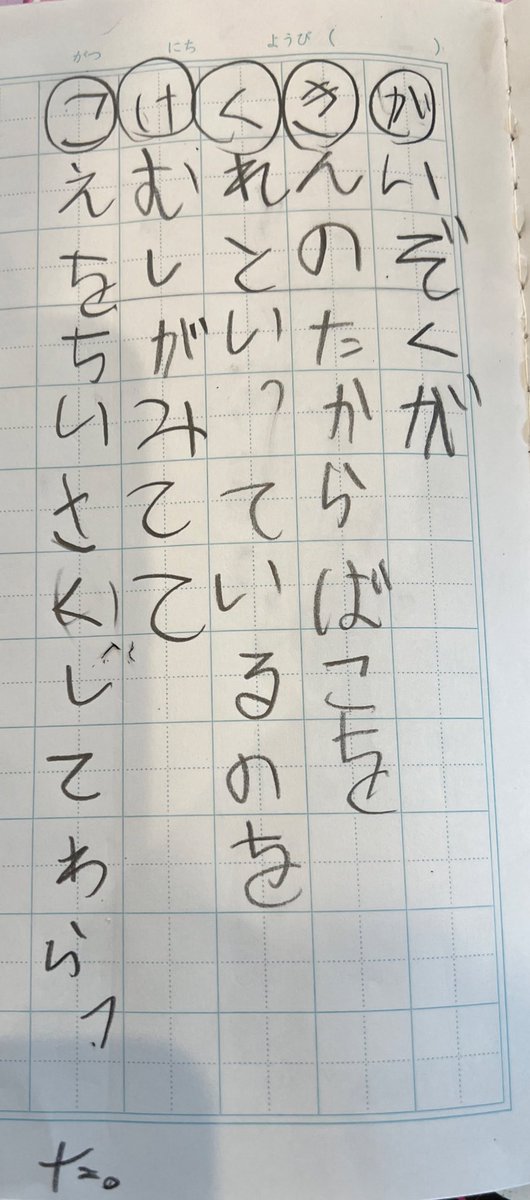 がつ　にち　ようび（　　）
がいぞくが
きんのたからばこを
くれといっているのを
けむしがみてて
こえをちいさくしてわらった。